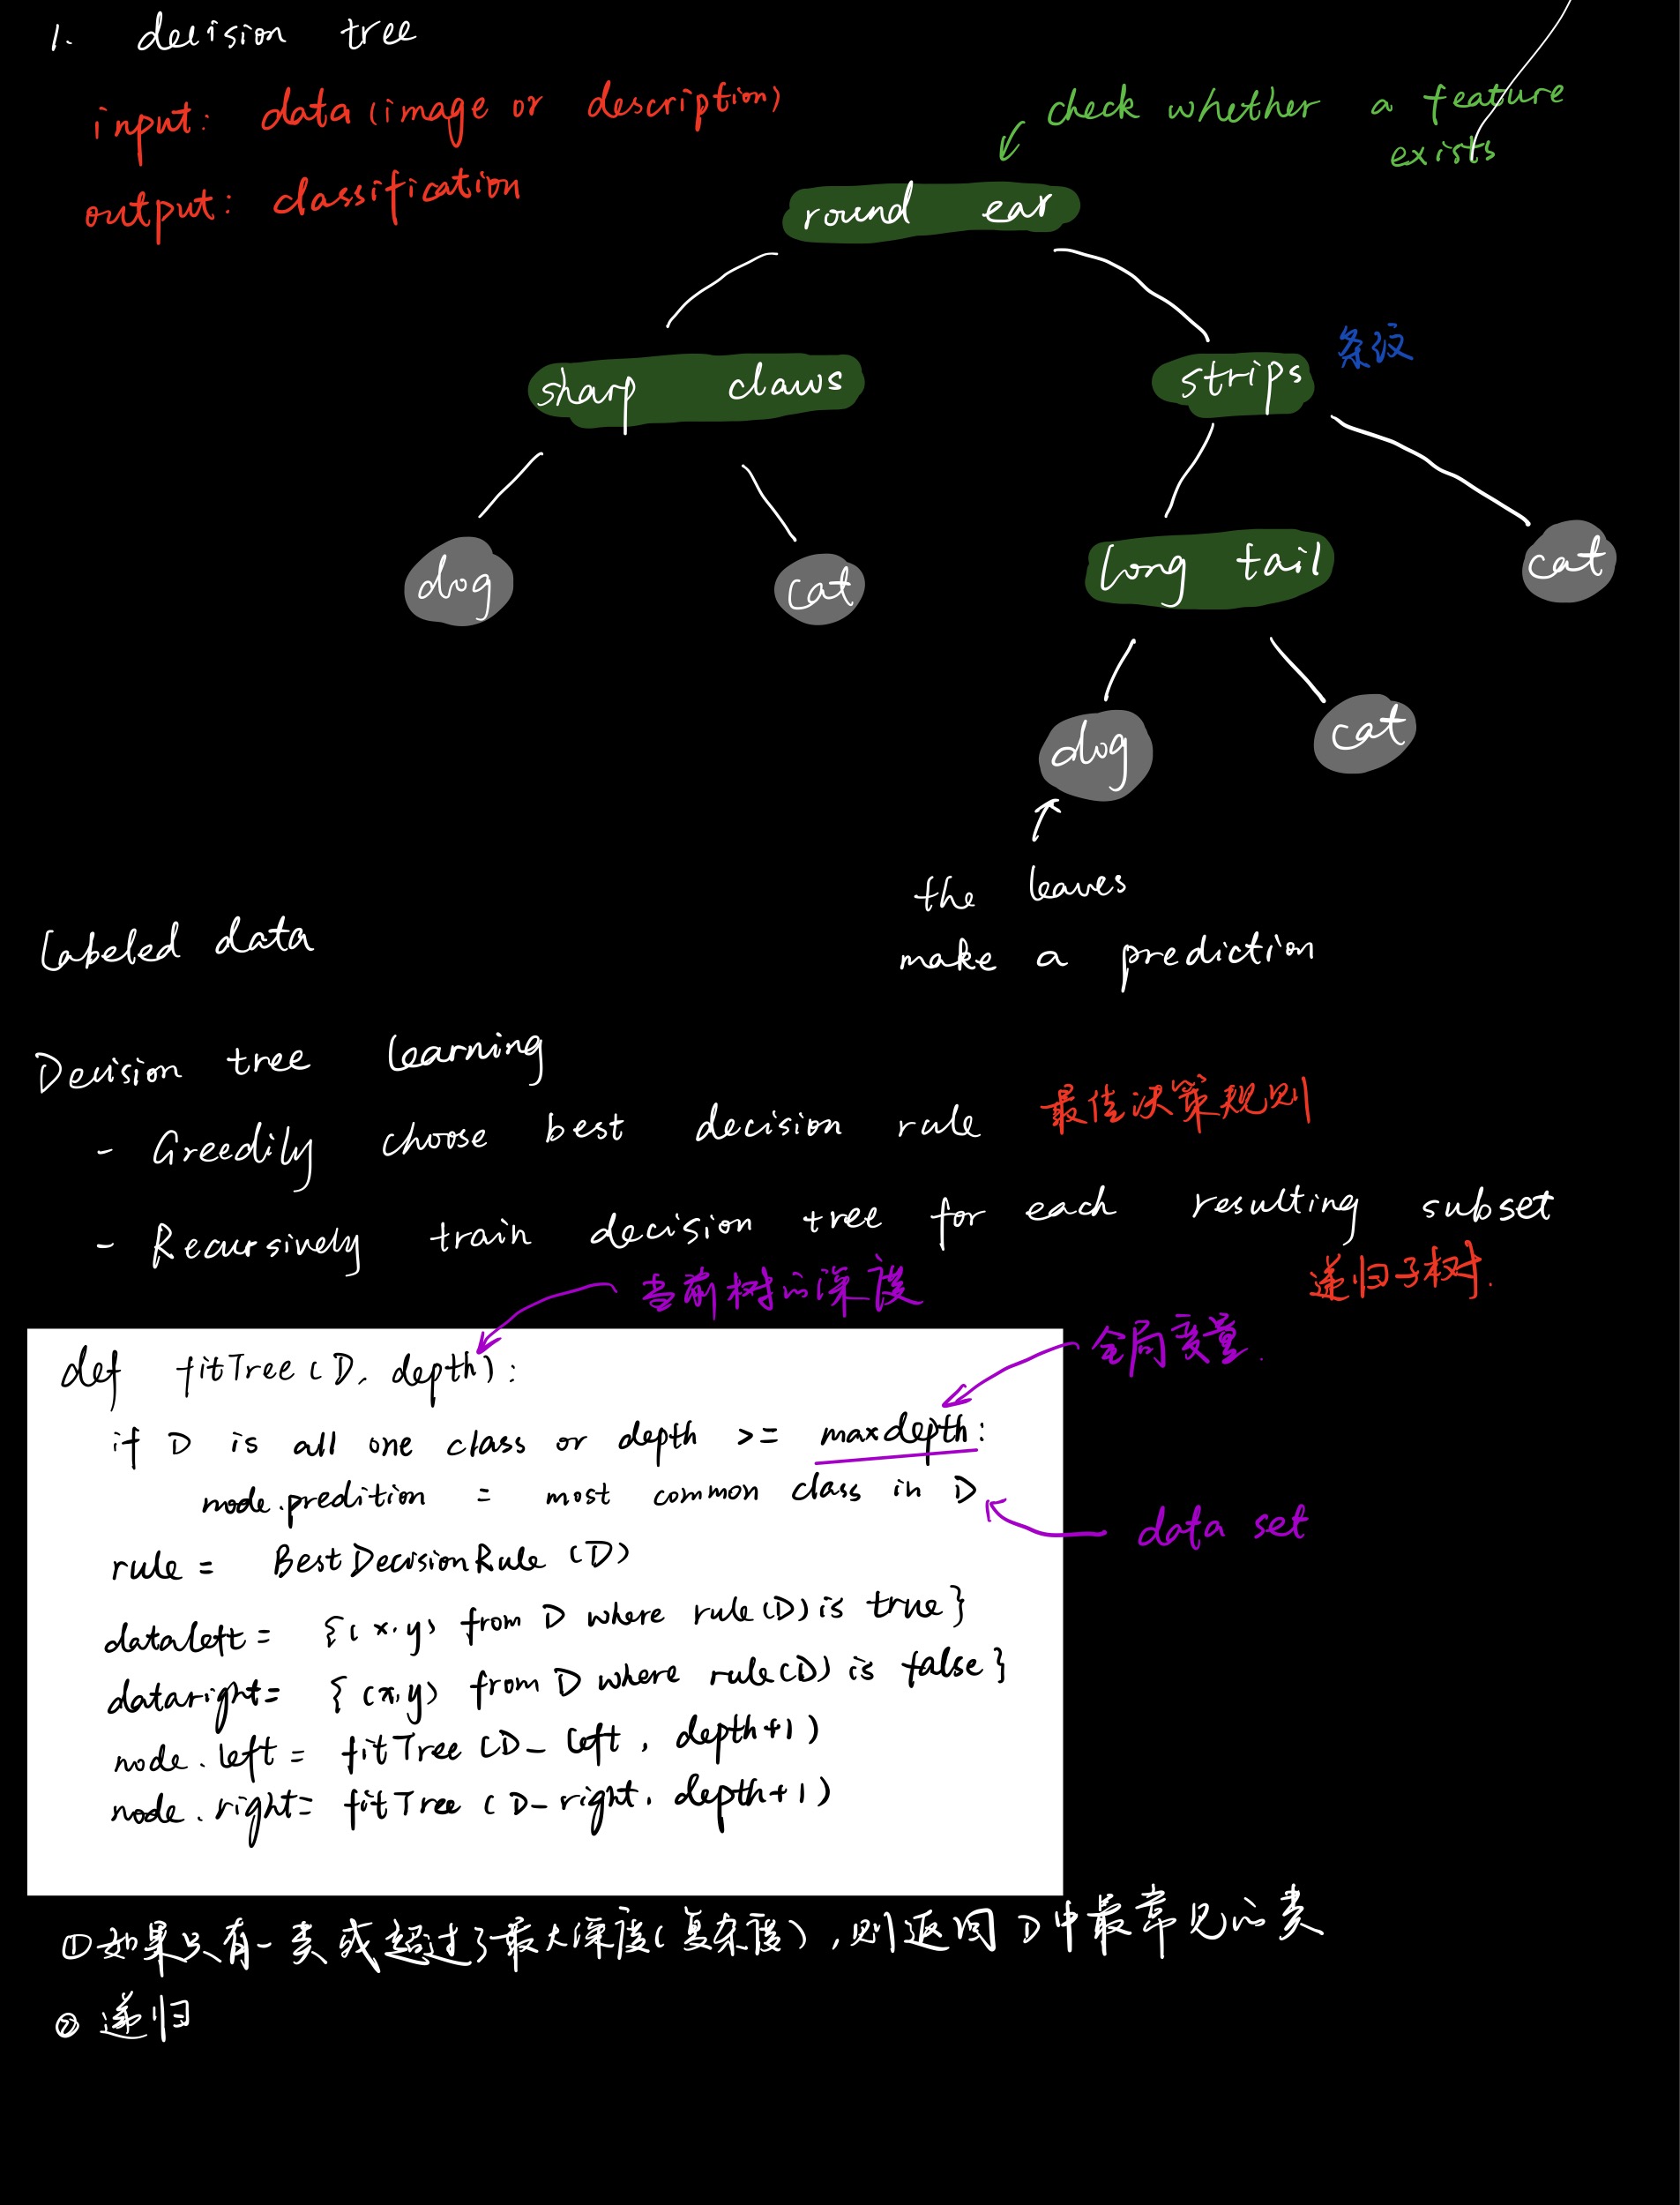 1. decision tree
input: data (image or description)
output: classification
check whether a feature
exists
round ear
sharp claws
strips
条纹
dog
cat
long tail
cat
dog
cat
the leaves
make a prediction
Labeled data
Decision tree learning
- Greedily choose best decision rule 最佳决策规则
- Recursively train decision tree for each resulting subset
递归子树.
当前树的深度
全局变量.
def fitTree (D, depth):
if D is all one class or depth >= maxdepth:
node.predition = most common class in D
data set
rule = BestDecisionRule (D)
dataleft = {(x,y) from D where rule(D) is true}
dataright = {(x,y) from D where rule(D) is false}
node.left = fitTree (D_left, depth+1)
node.right = fitTree (D_right, depth+1)
①如果只有一类或超过了最大深度(复杂度),则返回D中最常见的类
② 递归